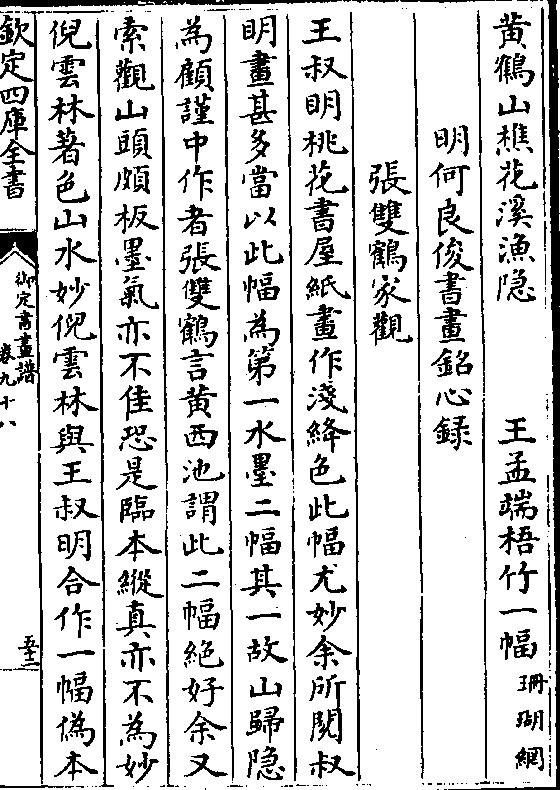 黄鶴山樵花溪漁隐　王孟端梧竹一幅珊瑚網
明何良俊書畫銘心録
張雙鶴家觀
王叔明桃花書屋紙畫作淺絳色此幅尤妙余所閱叔
明畫甚多當以此幅為第一水墨二幅其一故山歸隐
為顧謹中作者張雙鶴言黄西池謂此二幅絶好余又
索觀山頭頗板墨氣亦不佳恐是臨本縱真亦不為妙
倪雲林著色山水妙倪雲林與王叔明合作一幅偽本
欽定四庫全書
御定書畫譜
卷九十八
五十二